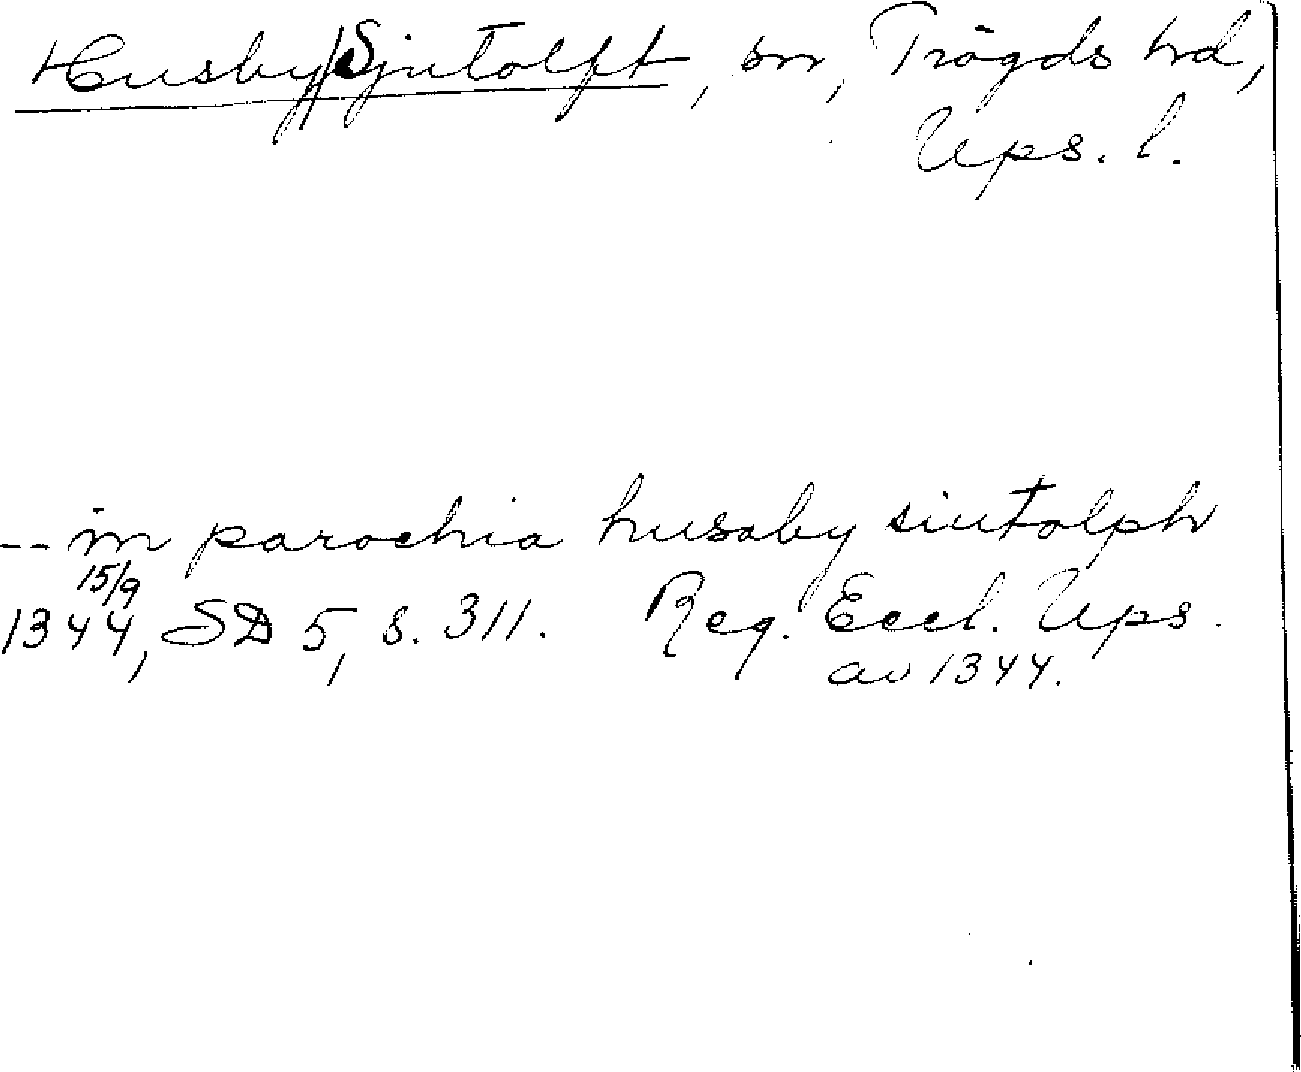 Husby/Sjutolft, sn, Trögds hd,
Ups. l.
-- in parochia husaby siutolph
15/9
1344, SD 5, s. 311. Reg. Eccl. Ups.
av 1344.